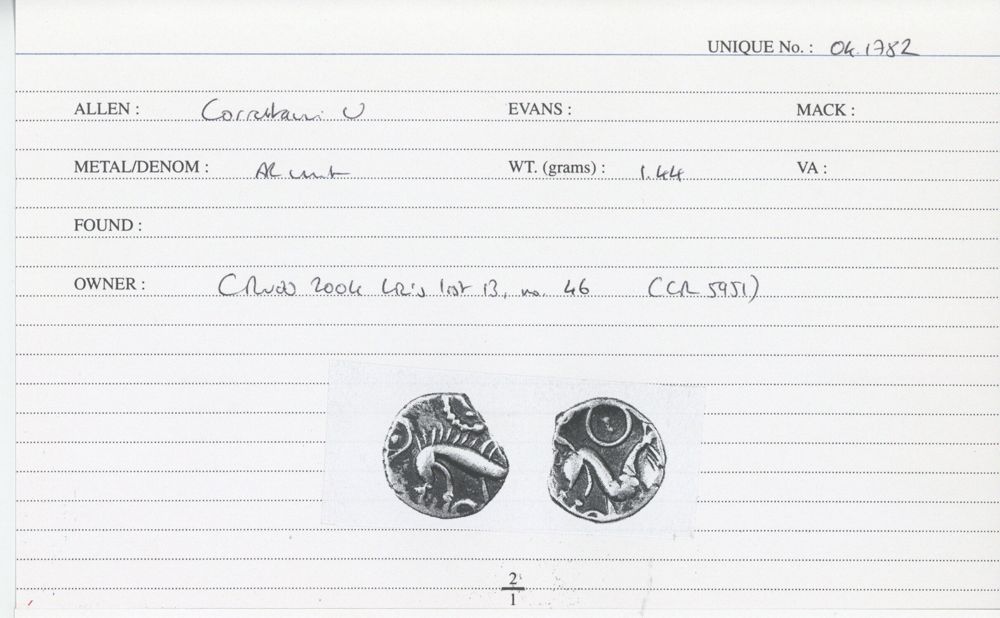 UNIQUE No. : 04.1782
ALLEN : Corieltauvi U EVANS : MACK :
METAL/DENOM : AR unit WT. (grams) : 1.44 VA :
FOUND :
OWNER : CRudd 2004 Liz's list 13, no. 46 (CR 5951)
2
1